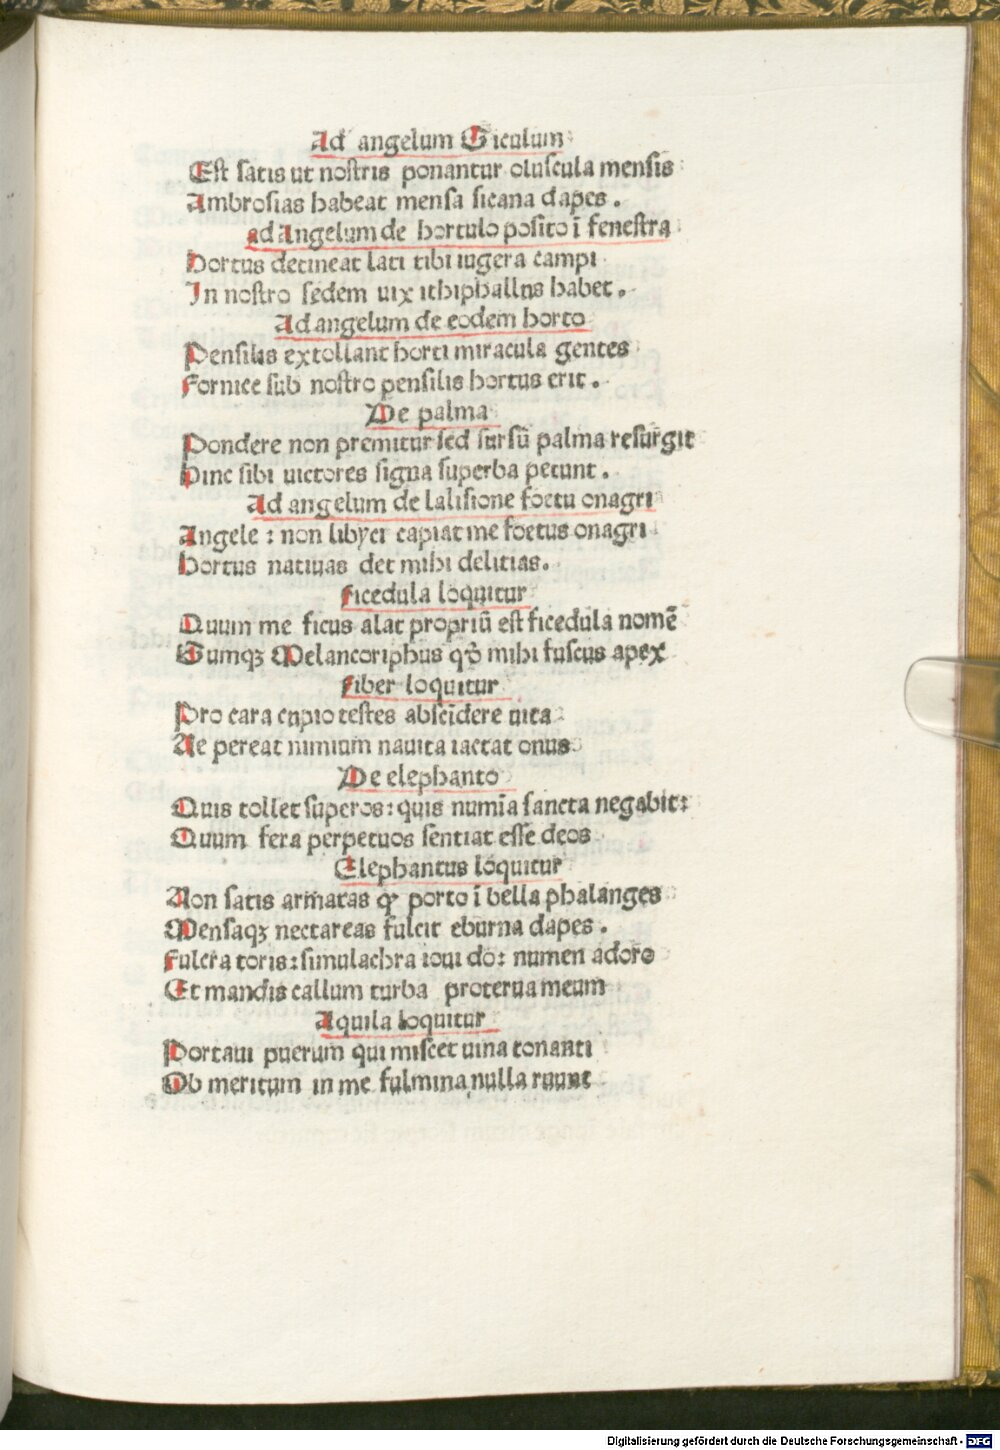 Ad angelum Siculum
Est satis ut nostris ponantur oluscula mensis
Ambrosias habeat mensa sicana dapes.
ad Angelum de hortulo posito ī fenestra
Hortus detineat lati tibi iugera campi
In nostro sedem uix ithiphallus habet.
Ad angelum de eodem horto
Pensilis extollant horti miracula gentes
Fornice sub nostro pensilis hortus erit.
De palma
Pondere non premitur sed sursū palma resurgit
Hinc sibi uictores signa superba petunt.
Ad angelum de lalisione foetu onagri
Angele : non libyci capiat me foetus onagri
Hortus natiuas det mihi delitias.
Ficedula loquitur
Quum me ficus alat propriū est ficedula nomē
Tumqꝫ Melancoriphus qͦ mihi fuscus apex
Fiber loquitur
Pro cara cupio testes abscīdere uita
Ne pereat nimium nauita iactat onus
De elephanto
Quis tollet superos : quis numīa sancta negabit:
Quum fera perpetuos sentiat esse deos
Elephantus loquitur
Non satis armatas ꝙ porto ī bella phalanges
Mensaqꝫ nectareas fulcit eburna dapes.
Fulcra toris: simulachra ioui do: numen adoro
Et mandis callum turba proterua meum
Aquila loquitur
Portaui puerum qui miscet uina tonanti
Ob meritum in me fulmina nulla ruunt
Digitalisierung gefördert durch die Deutsche Forschungsgemeinschaft - DFG